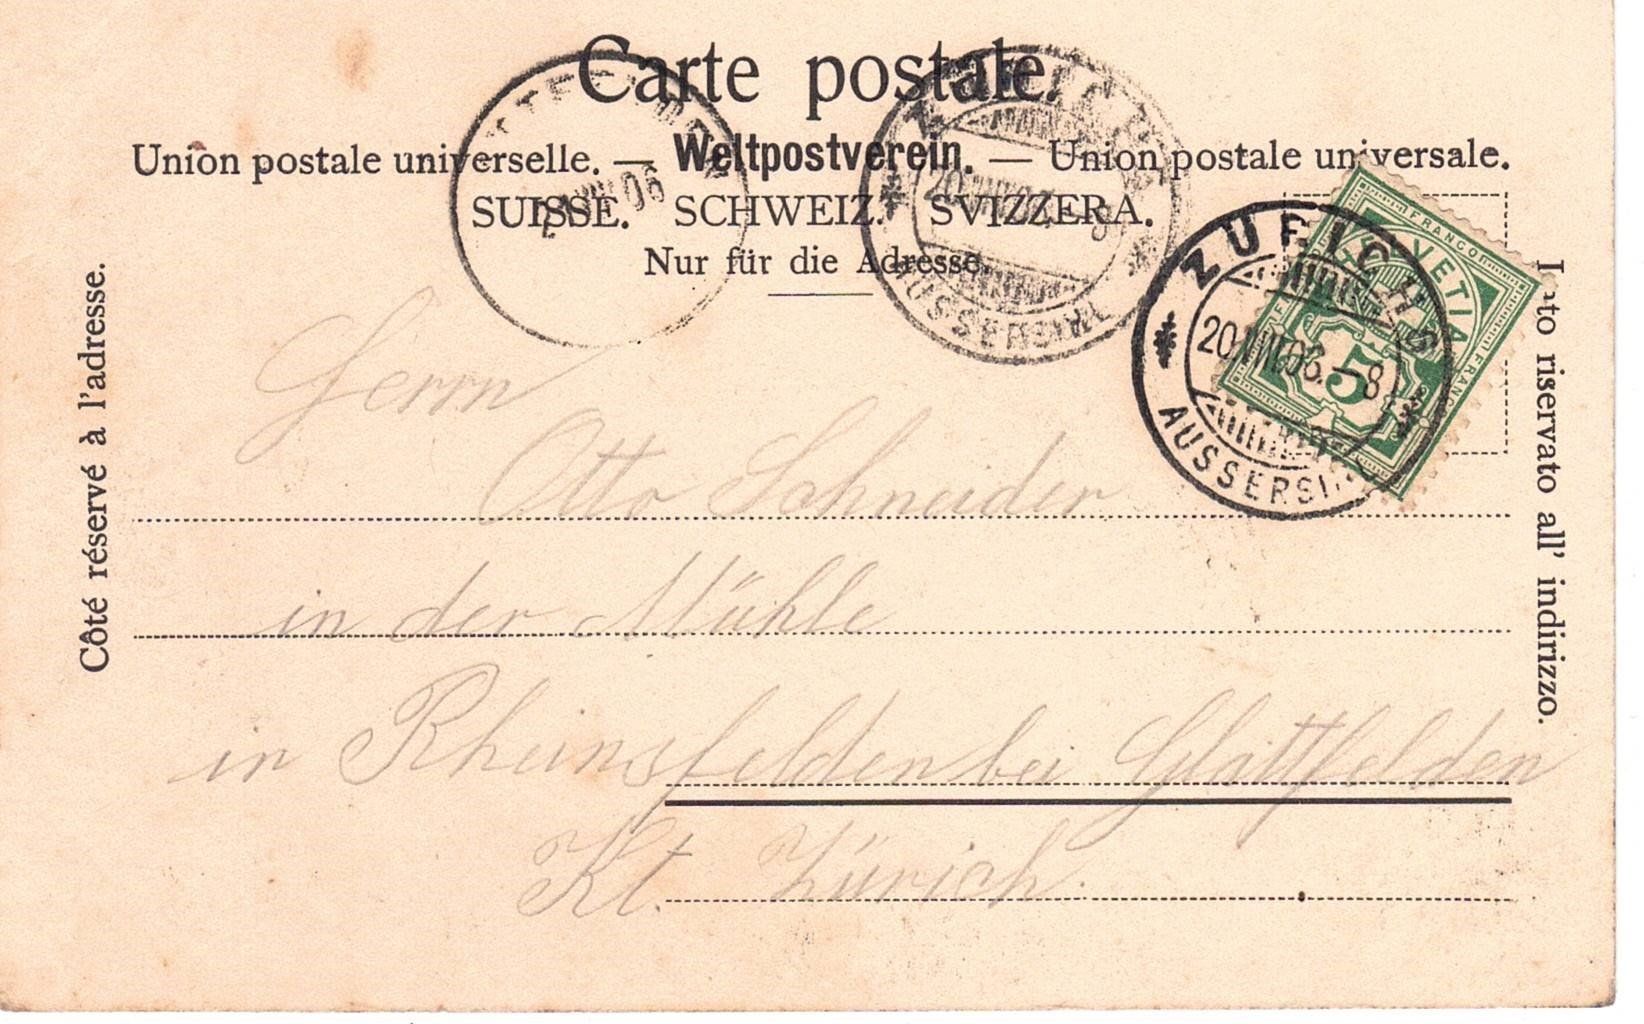 Carte postale.
Union postale universelle. — Weltpostverein. — Union postale universale.
SUISSE. SCHWEIZ. SVIZZERA.
Nur für die Adresse.
Côté réservé à l'adresse.
riservato all' indirizzo.
AUSSERSIHL
ZÜRICH
20.VIII.06.-8
AUSSERSIHL
HELVETIA
FRANCO
5
Herrn
Otto Schneider
in der Mühle
in Rheinsfelden bei Glattfelden
Kt. Zürich.